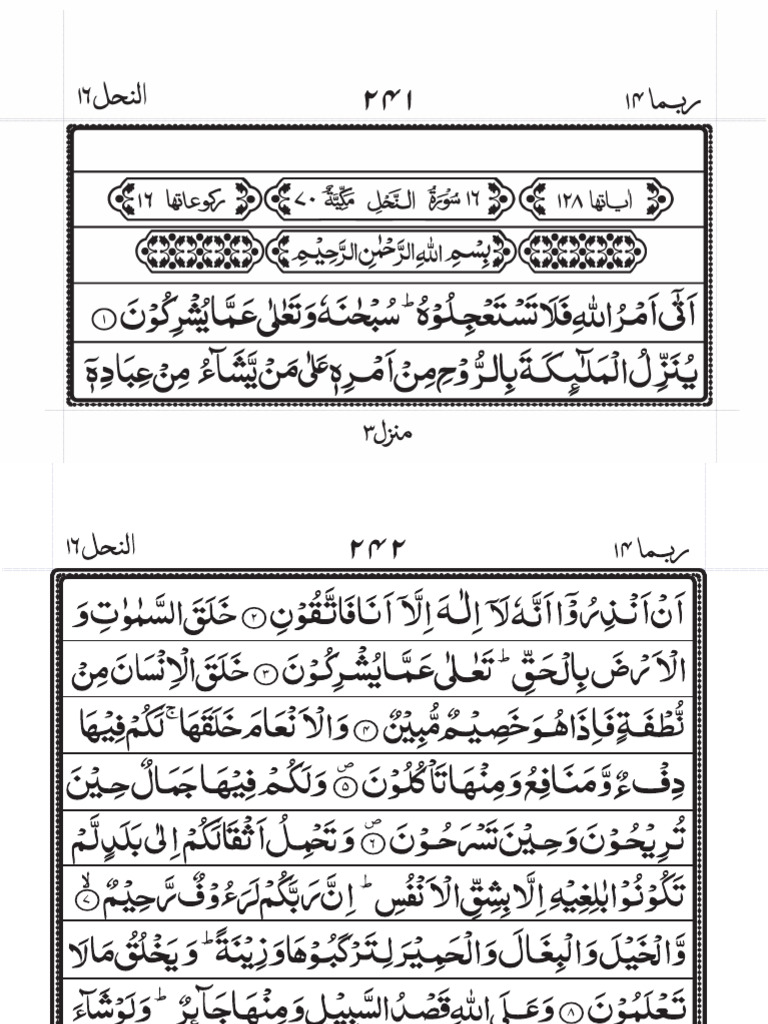 ربما ۱۴ ۲۴۱ النحل ۱۶
اياتها ۱۲۸ ۱۶ سُوْرَةُ النَّحْلِ مَكِّيَّةٌ ۷۰ ركوعاتها ۱۶
بِسْمِ اللّٰهِ الرَّحْمٰنِ الرَّحِيْمِ
اَتٰۤى اَمْرُ اللّٰهِ فَلَا تَسْتَعْجِلُوْهُ ؕ سُبْحٰنَهٗ وَتَعٰلٰى عَمَّا يُشْرِكُوْنَ ۱
يُنَزِّلُ الْمَلٰٓئِكَةَ بِالرُّوْحِ مِنْ اَمْرِهٖ عَلٰى مَنْ يَّشَآءُ مِنْ عِبَادِهٖۤ
منزل ۳
ربما ۱۴ ۲۴۲ النحل ۱۶
اَنْ اَنْذِرُوْۤا اَنَّهٗ لَاۤ اِلٰهَ اِلَّاۤ اَنَا فَاتَّقُوْنِ ۲ خَلَقَ السَّمٰوٰتِ وَ
الْاَرْضَ بِالْحَقِّ ؕ تَعٰلٰى عَمَّا يُشْرِكُوْنَ ۳ خَلَقَ الْاِنْسَانَ مِنْ
نُّطْفَةٍ فَاِذَا هُوَ خَصِيْمٌ مُّبِيْنٌ ۴ وَالْاَنْعَامَ خَلَقَهَا ۚ لَكُمْ فِيْهَا
دِفْءٌ وَّمَنَافِعُ وَمِنْهَا تَاْكُلُوْنَ ۵ ۪ وَلَكُمْ فِيْهَا جَمَالٌ حِيْنَ
تُرِيْحُوْنَ وَحِيْنَ تَسْرَحُوْنَ ۶ ۪ وَتَحْمِلُ اَثْقَالَكُمْ اِلٰى بَلَدٍ لَّمْ
تَكُوْنُوْا بٰلِغِيْهِ اِلَّا بِشِقِّ الْاَنْفُسِ ؕ اِنَّ رَبَّكُمْ لَرَءُوْفٌ رَّحِيْمٌ ۷ ۙ
وَّالْخَيْلَ وَالْبِغَالَ وَالْحَمِيْرَ لِتَرْكَبُوْهَا وَزِيْنَةً ؕ وَيَخْلُقُ مَا لَا
تَعْلَمُوْنَ ۸ وَعَلَى اللّٰهِ قَصْدُ السَّبِيْلِ وَمِنْهَا جَآئِرٌ ؕ وَلَوْ شَآءَ